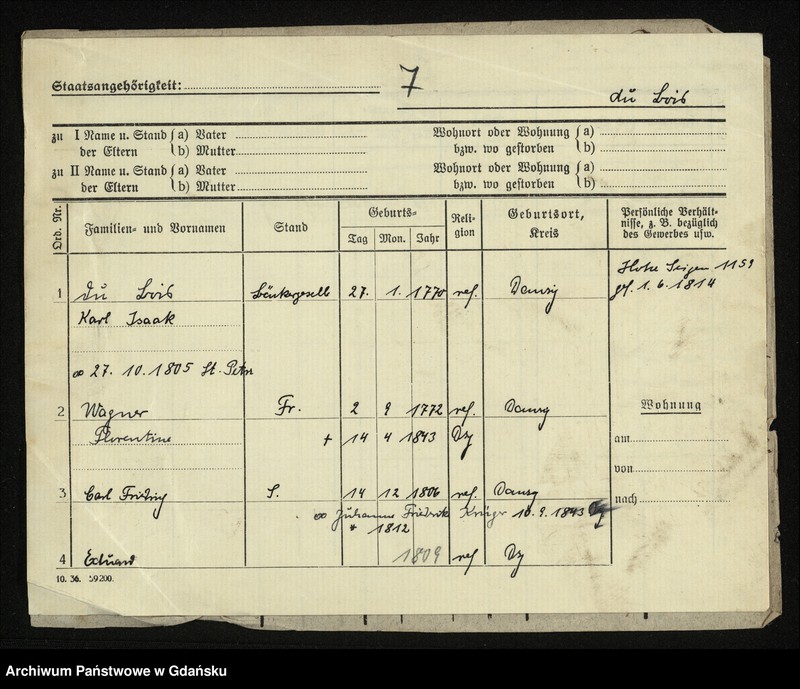 Staatsangehörigkeit: 7
du Bois
zu I Name u. Stand a) Vater Wohnort oder Wohnung a)
der Eltern b) Mutter bzw. wo gestorben b)
zu II Name u. Stand a) Vater Wohnort oder Wohnung a)
der Eltern b) Mutter bzw. wo gestorben b)
Ord. Nr. Familien- und Vornamen Stand Geburts= Tag Mon. Jahr Reli- gion Geburtsort, Kreis Persönliche Verhält- nisse, z. B. bezüglich des Gewerbes usw.
Hohe Seigen 1159
1 du Bois 27. 1. 1770 ref. Danzig gst. 1. 6. 1814
Karl Isaak
∞ 27. 10. 1805 St. Petri
2 Wagner Fr. 2 9 1772 ref. Danzg Wohnung
Florentine + 14 4 1843 Dzg am
von
3 Carl Fridrich S. 14 12 1806 ref. Danzg nach
∞ Juhanne Friedrik Krüger 10. 9. 1843 Dzg
* 1812
4 Eduard 1809 ref Dzg
10. 36. 59200.
Archiwum Państwowe w Gdańsku